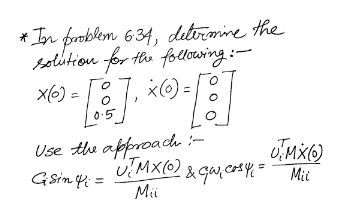 * In problem 6.34, determine the
solution for the following:-
X(0) = [0 0 0.5], ẋ(0) = [0 0 0]
Use the approach :-
C₁sin ψᵢ = UᵢᵀMX(0) / Mᵢᵢ & C₁ωᵢcosψᵢ = UᵢᵀMẋ(0) / Mᵢᵢ